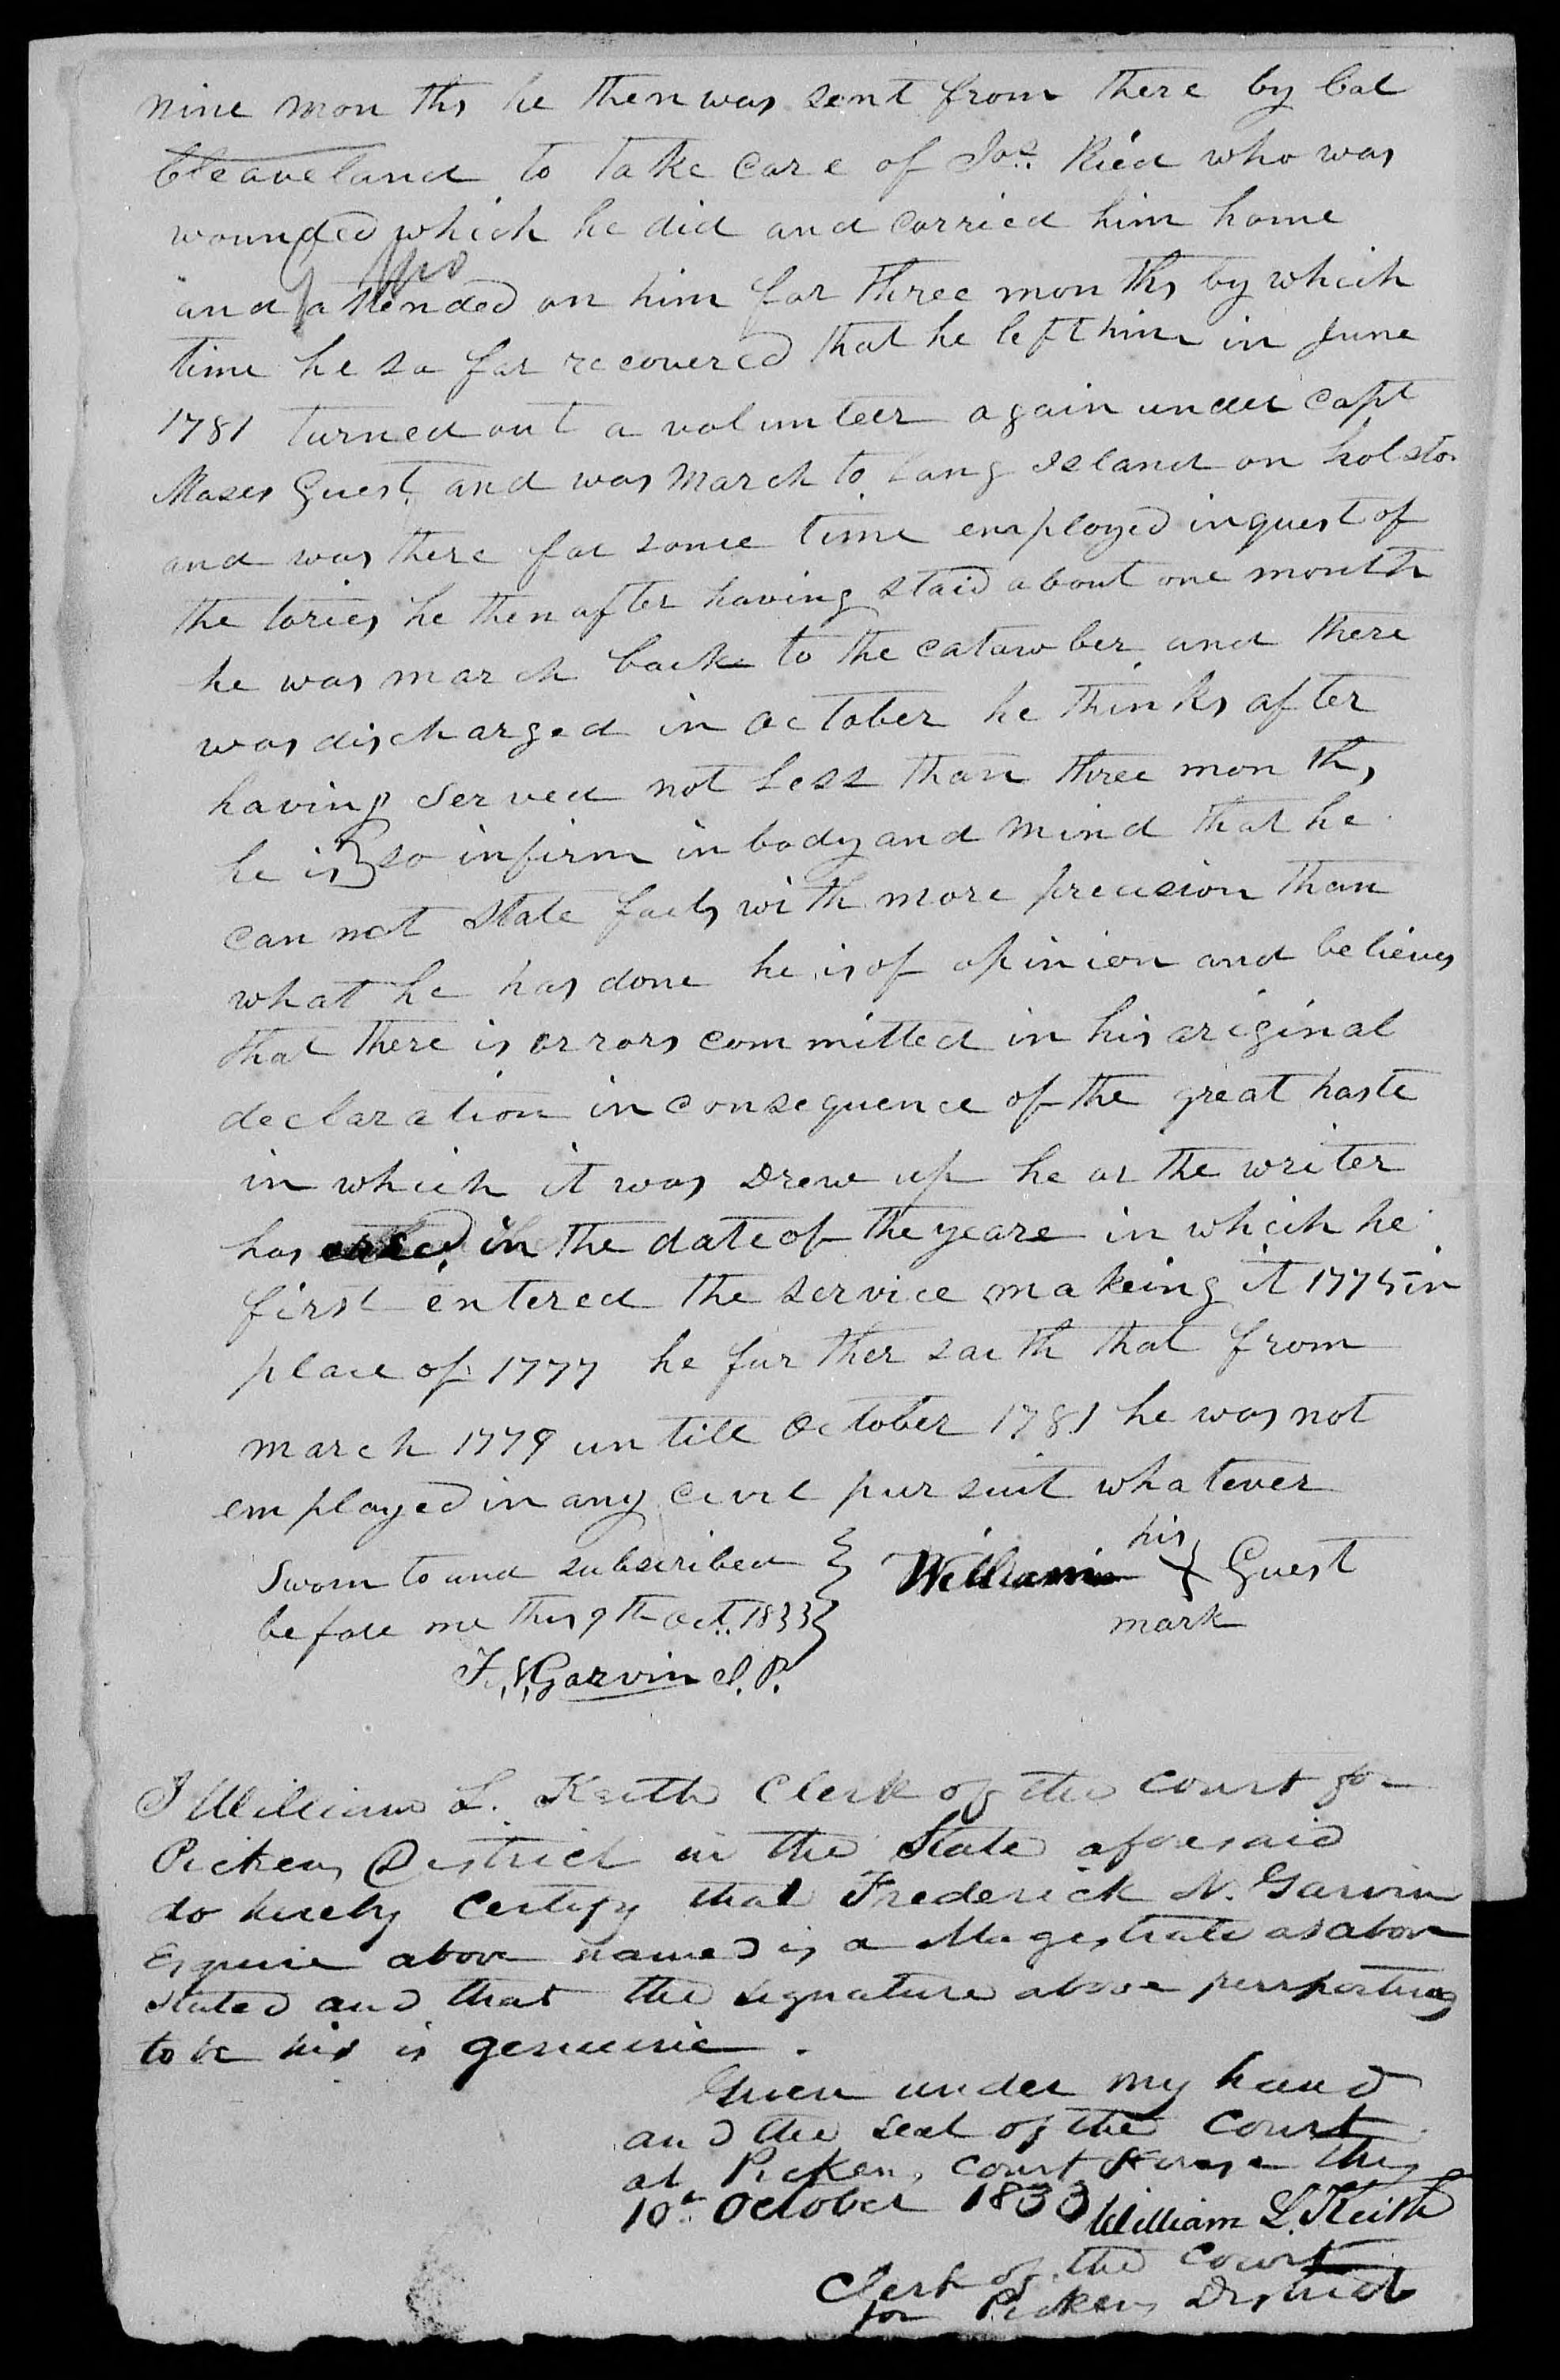 nine mon ths he then was sent from there by Col
Cleaveland to take care of Jos. Ried who was
wounded which he did and carried him home
and attended on him for three mon ths by which
time he so far recovered that he left him in June
1781 turned out a volunteer again under Capt
Moses Guest and was march to Long Island on holston
and was there for some time employed in quest of
the tories he then after having staid about one month
he was march back to the catawber and there
was discharged in October he thinks after
having served not less than three mon ths
he is so infirm in body and mind that he
can not state facts with more precision than
what he has done he is of opinion and believes
that there is errors committed in his original
declaration in consequence of the great haste
in which it was Drew up he or the writer
has in the date of the yeare in which he
first entered the service makeing it 1775 in
place of 1777 he further saith that from
march 1779 un till October 1781 he was not
employed in any civil pursuit whatever
Sworn to and subscribed
before me this 9th Oct. 1833
F. N. Garvin J. P.
his
William X Guest
mark
I William L. Keith Clerk of the Court for
Pickens District in the State aforesaid
do hereby Certify that Frederick N. Garvin
Esquire above named is a Magistrate as above
stated and that the signature above purporting
to be his is genuine.
Given under my hand
and the seal of the Court
at Pickens Court House this
10th October 1833 William L. Keith
Clerk of the Court
for Pickens District